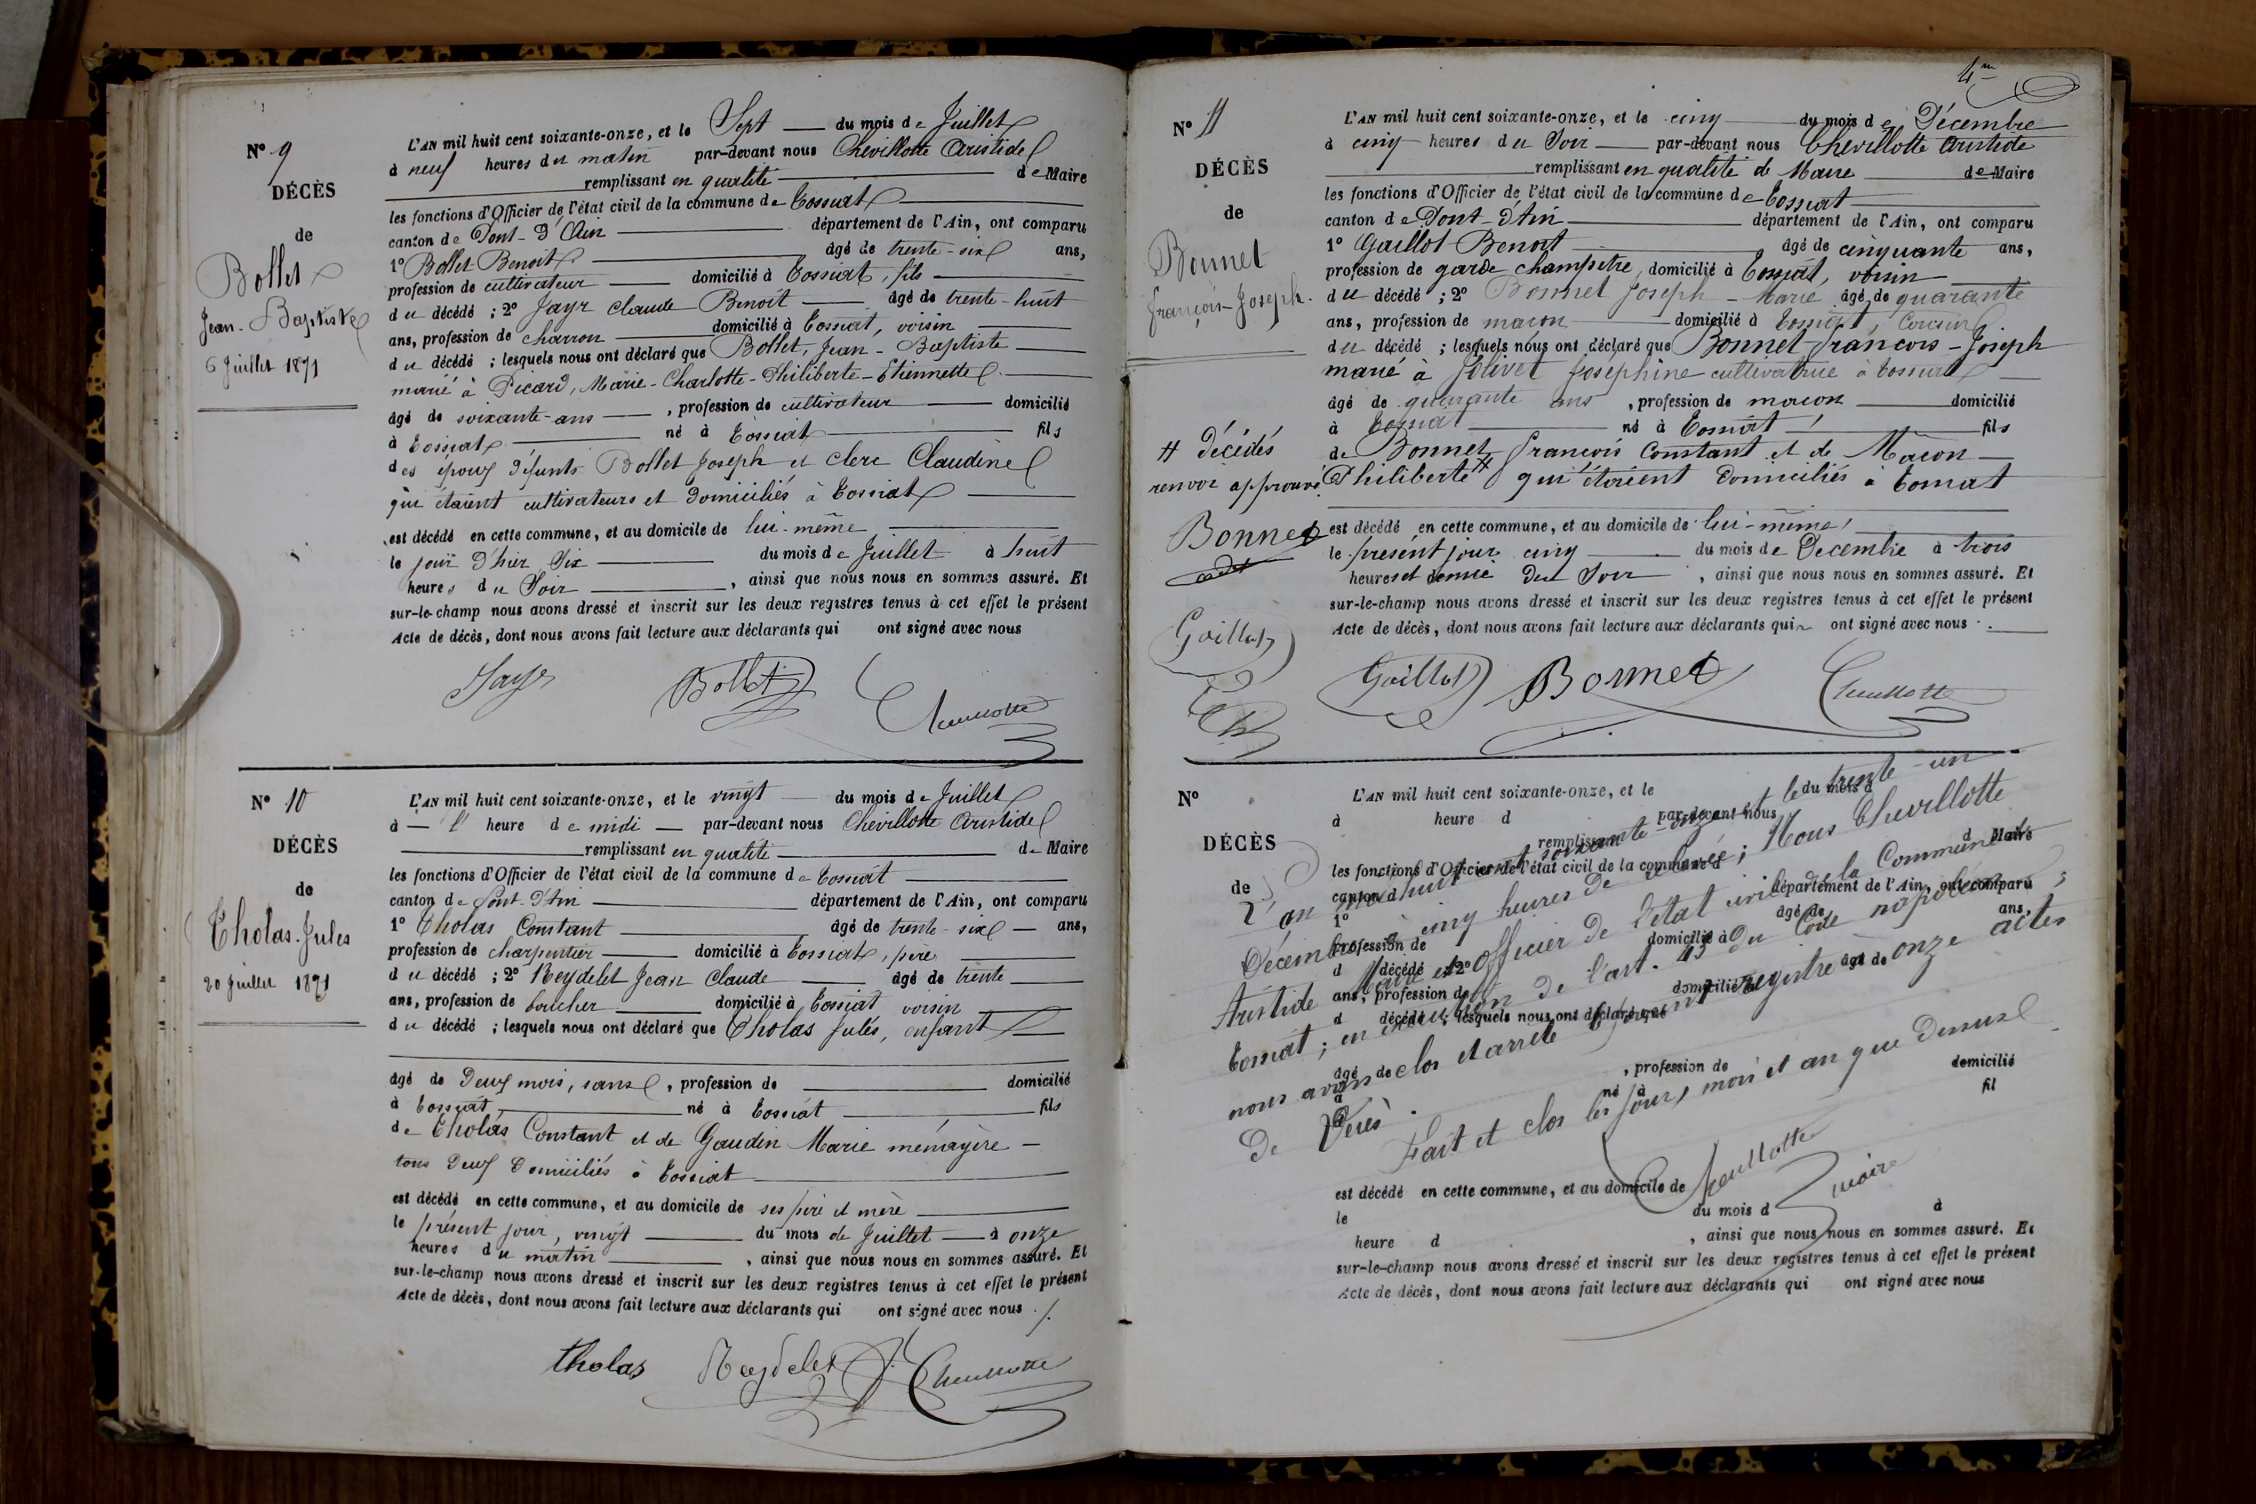 N° 9
DÉCÈS
de
Bollet
Jean-Baptiste
6 Juillet 1871
L'AN mil huit cent soixante-onze, et le Sept du mois de Juillet
à neuf heures du matin par-devant nous Chevillotte Aristide
remplissant en qualité de Maire
les fonctions d'Officier de l'état civil de la commune de Tossiat
canton de Pont-d'Ain département de l'Ain, ont comparu
1° Bollet Benoit âgé de trente-six ans,
profession de cultivateur domicilié à Tossiat, fils
du décédé ; 2° Jayr Claude Benoit âgé de trente-huit
ans, profession de charron domicilié à Tossiat, voisin
du décédé ; lesquels nous ont déclaré que Bollet, Jean-Baptiste
marié à Picard, Marie-Charlotte-Philiberte-Etiennette
âgé de soixante-ans, profession de cultivateur domicilié
à Tossiat né à Tossiat fils
des époux défunts Bollet Joseph et Clerc Claudine
qui étaient cultivateurs et domiciliés à Tossiat
est décédé en cette commune, et au domicile de lui-même
le jour d'hier Six du mois de Juillet à huit
heures du Soir, ainsi que nous nous en sommes assuré. Et
sur-le-champ nous avons dressé et inscrit sur les deux registres tenus à cet effet le présent
Acte de décès, dont nous avons fait lecture aux déclarants qui ont signé avec nous
Jayr Bollet Chevillotte
N° 10
DÉCÈS
de
Tholas Jules
20 Juillet 1871
L'AN mil huit cent soixante-onze, et le vingt du mois de Juillet
à l' heure de midi par-devant nous Chevillotte Aristide
remplissant en qualité de Maire
les fonctions d'Officier de l'état civil de la commune de Tossiat
canton de Pont-d'Ain département de l'Ain, ont comparu
1° Tholas Constant âgé de trente-six ans,
profession de charpentier domicilié à Tossiat, père
du décédé ; 2° Reydelet Jean Claude âgé de trente
ans, profession de boucher domicilié à Tossiat voisin
du décédé ; lesquels nous ont déclaré que Tholas Jules, enfant
âgé de Deux mois, sans, profession de domicilié
à Tossiat, né à Tossiat fils
de Tholas Constant et de Gaudin Marie ménagère
tous Deux Domiciliés à Tossiat
est décédé en cette commune, et au domicile de ses père et mère
le présent jour, vingt du mois de Juillet à onze
heures du matin, ainsi que nous nous en sommes assuré. Et
sur-le-champ nous avons dressé et inscrit sur les deux registres tenus à cet effet le présent
Acte de décès, dont nous avons fait lecture aux déclarants qui ont signé avec nous
tholas Reydelet Chevillotte
N° 11
DÉCÈS
de
Bonnet
François-Joseph
# Décédés
renvoi approuvé
Bonnet
Gaillot
Ch
L'AN mil huit cent soixante-onze, et le cinq du mois de Décembre
à cinq heures du Soir par-devant nous Chevillotte Aristide
remplissant en qualité de Maire de Maire
les fonctions d'Officier de l'état civil de la commune de Tossiat
canton de Pont-d'Ain département de l'Ain, ont comparu
1° Gaillot Benoit âgé de cinquante ans,
profession de garde champêtre, domicilié à Tossiat, voisin
du décédé ; 2° Bonnet Joseph-Marie âgé de quarante
ans, profession de maçon domicilié à Tossiat, Cousin
du décédé ; lesquels nous ont déclaré que Bonnet François-Joseph
marié à Jolivet Josephine cultivatrice à Tossiat
âgé de quarante ans, profession de maçon domicilié
à Tossiat né à Tossiat fils
de Bonnet François Constant et de Maçon
Philiberte # qui étaient Domiciliés à Tossiat
est décédé en cette commune, et au domicile de lui-même,
le présent jour cinq du mois de Décembre à trois
heures et demie du Soir, ainsi que nous nous en sommes assuré. Et
sur-le-champ nous avons dressé et inscrit sur les deux registres tenus à cet effet le présent
Acte de décès, dont nous avons fait lecture aux déclarants qui ont signé avec nous
Gaillot Bonnet Chevillotte
N°
DÉCÈS
de
L'AN mil huit cent soixante-onze, et le du mois d
à heure d par-devant nous
remplissant d Maire
les fonctions d'Officier de l'état civil de la commune d
canton d département de l'Ain, ont comparu
1° âgé de ans,
profession de domicilié à
d décédé ; 2° âgé de
ans, profession de domicilié à
d décédé ; lesquels nous ont déclaré que
L'an mil huit cent soixante-onze et le trente-un
Décembre à cinq heures de relevée ; Nous Chevillotte
Aristide Maire et Officier de l'état civil de la Commune de
Tossiat ; en exécution de l'art. 43 du Code napoléon ;
nous avons clos et arrêté le présent registre à onze actes
De Décès.
Fait et clos les jours, mois et an que dessus
Chevillotte maire
âgé de, profession de domicilié
à né à fil
est décédé en cette commune, et au domicile de
le du mois d à
heure d, ainsi que nous nous en sommes assuré. Et
sur-le-champ nous avons dressé et inscrit sur les deux registres tenus à cet effet le présent
Acte de décès, dont nous avons fait lecture aux déclarants qui ont signé avec nous